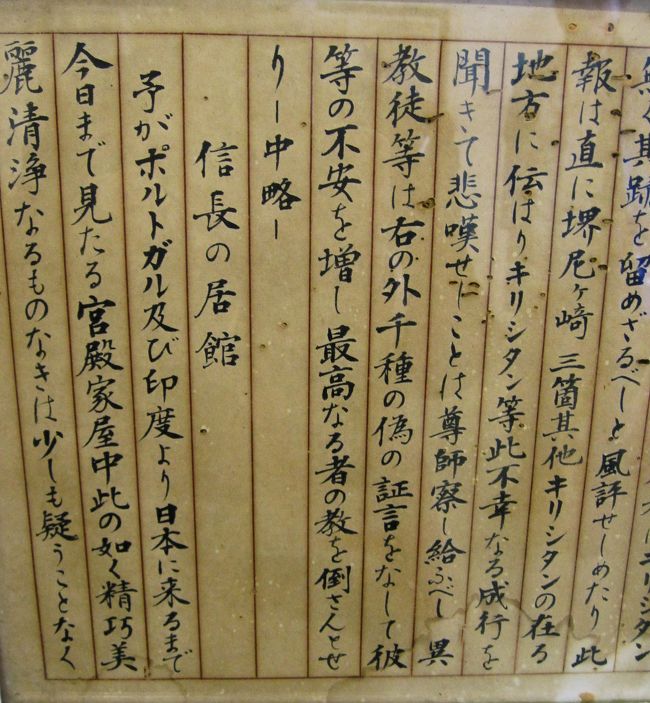 無く其跡を留めざるべしと風評せしめたり此
報は直に堺尼ヶ崎 三箇其他キリシタンの在る
地方に伝はりキリシタン等此不幸なる成行を
聞きて悲嘆せしことは尊師察し給ふべし 異
教徒等は右の外千種の偽の証言をなして彼
等の不安を増し最高なる者の教を倒さんとせ
りー中略ー
信長の居館
予がポルトガル及び印度より日本に来るまで
今日まで見たる宮殿家屋中此の如く精巧美
麗清浄なるものなきは少しも疑うことなく